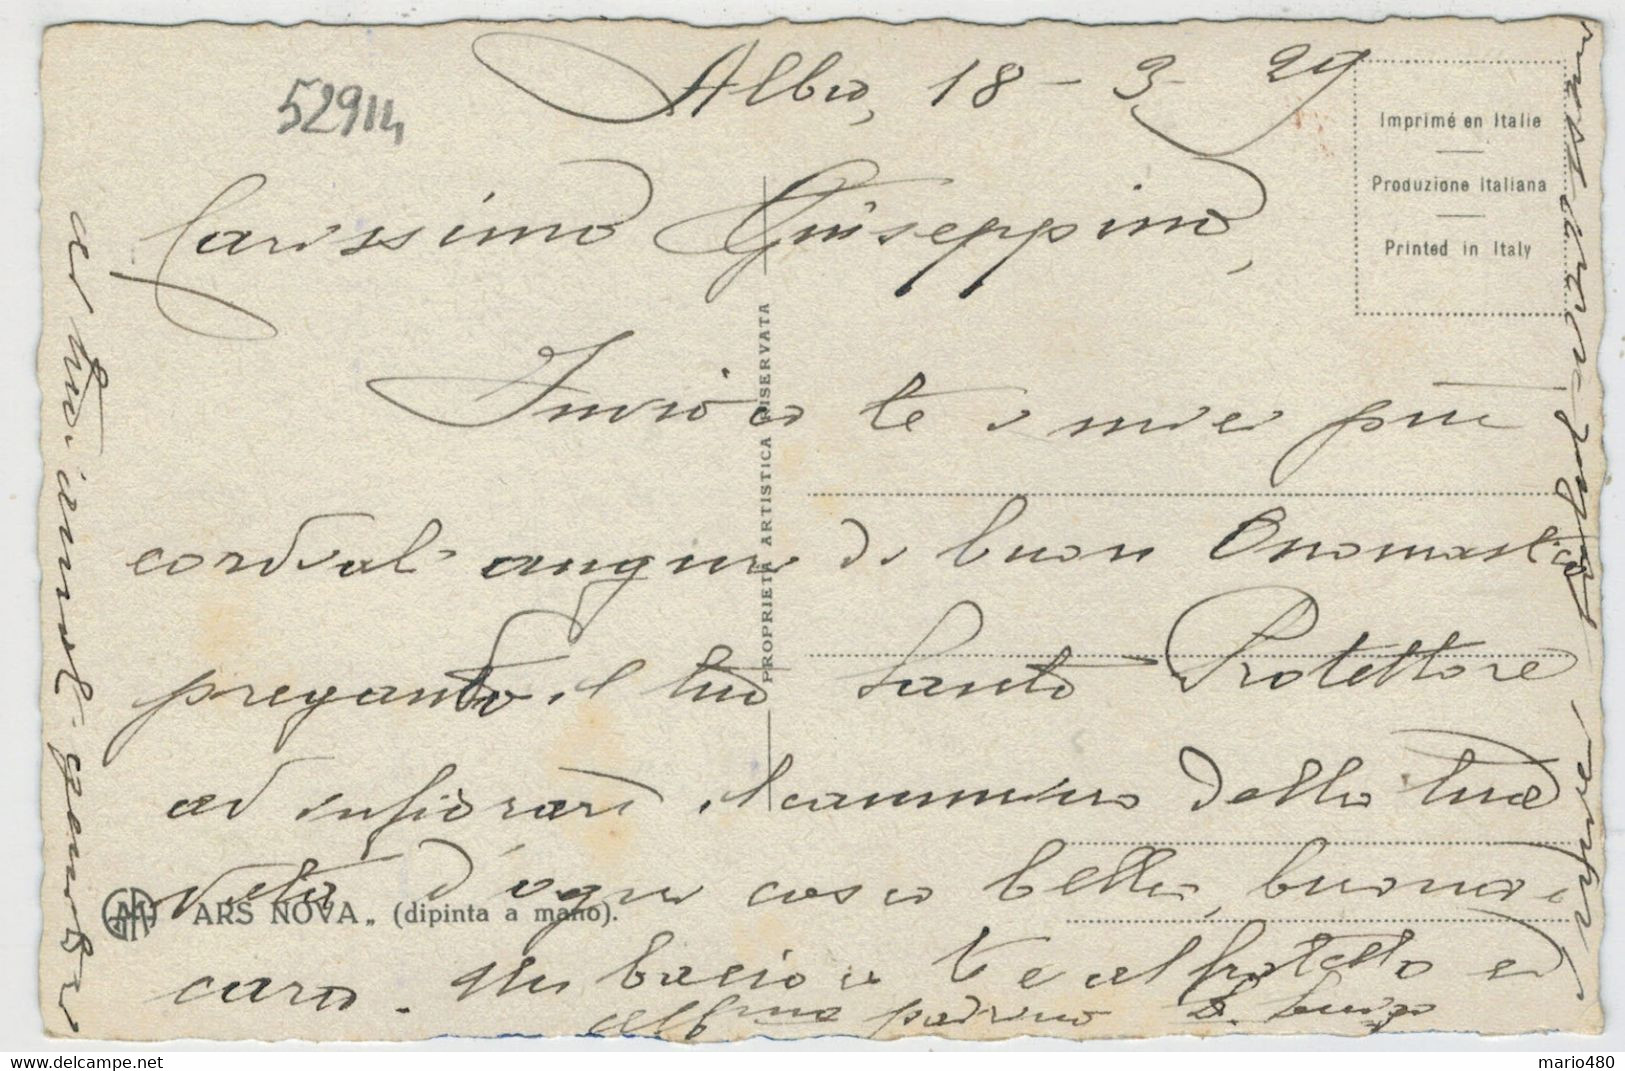 Albio, 18 - 3 - 29
52914
Imprimé en Italie
Produzione Italiana
Printed in Italy
Carissimo Giuseppino,
Invio a te i miei più
cordiali auguri di buon Onomastico
pregando il tuo Santo Protettore
ad infiorarti il cammino della tua
vita d'ogni cosa bella, buona e
cara. Un bacio a te e al fratello ed
padrino
ai tuoi amati genitori
PROPRIETÀ ARTISTICA RISERVATA
ARS NOVA„ (dipinta a mano).
mario480